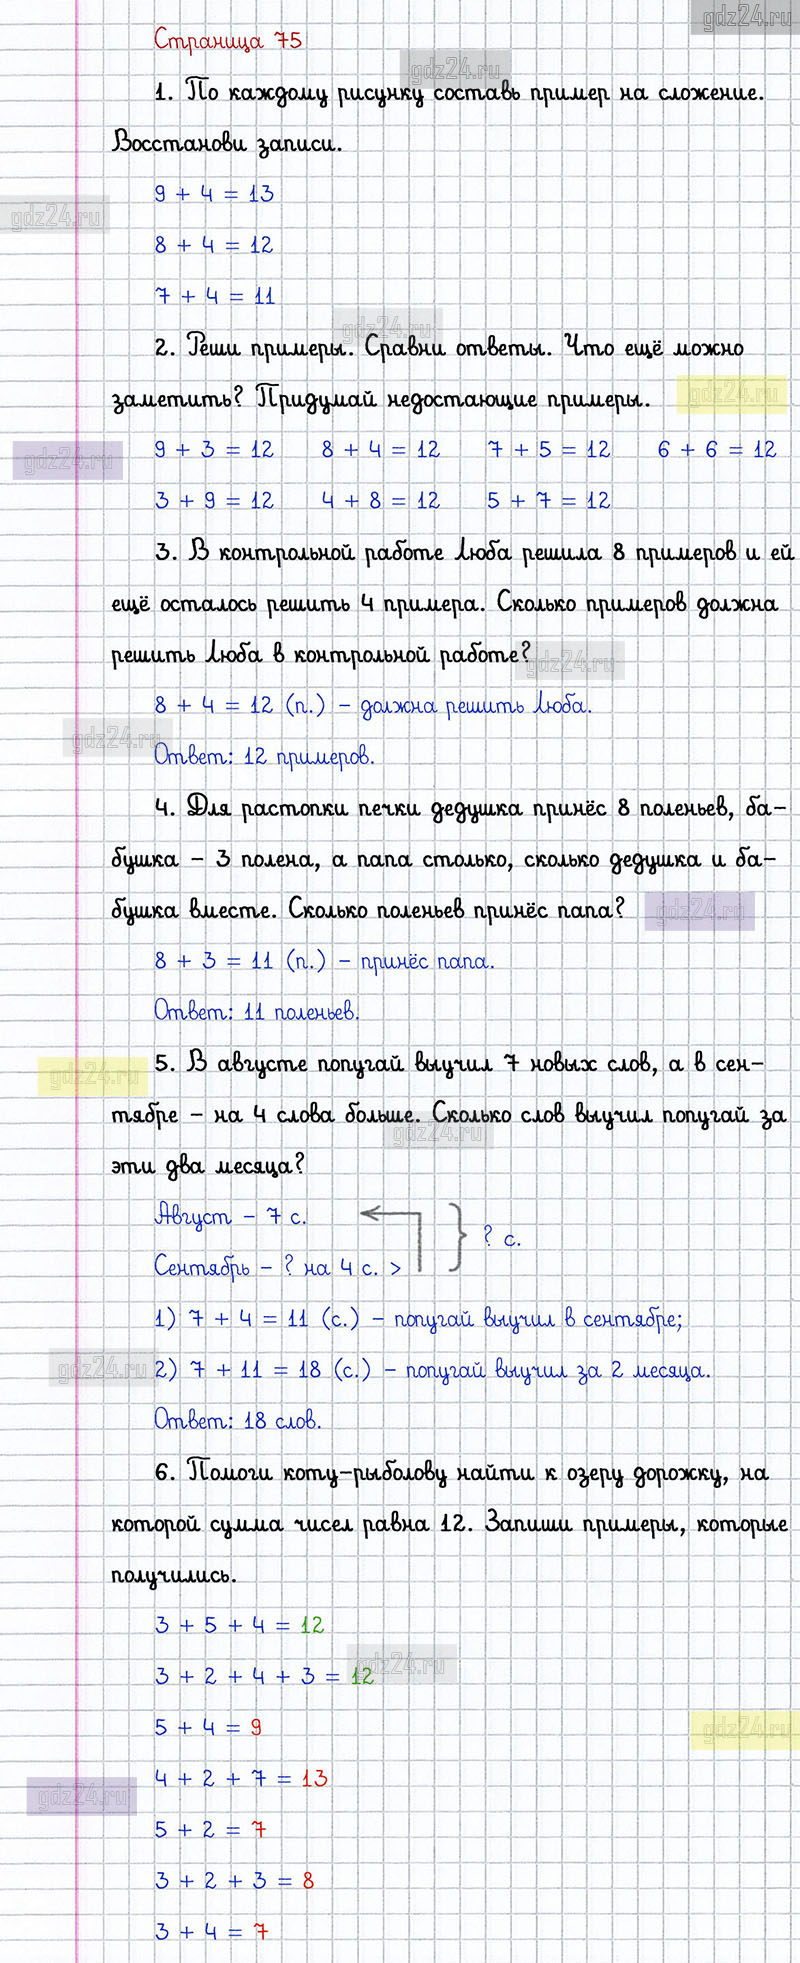 gdz24.ru
Страница 75
gdz24.ru
1. По каждому рисунку составь пример на сложение.
Восстанови записи.
9 + 4 = 13
gdz24.ru
8 + 4 = 12
7 + 4 = 11
gdz24.ru
2. Реши примеры. Сравни ответы. Что ещё можно
заметить? Придумай недостающие примеры.
gdz24.ru
9 + 3 = 12 8 + 4 = 12 7 + 5 = 12 6 + 6 = 12
gdz24.ru
3 + 9 = 12 4 + 8 = 12 5 + 7 = 12
3. В контрольной работе Люба решила 8 примеров и ей
ещё осталось решить 4 примера. Сколько примеров должна
решить Люба в контрольной работе?
gdz24.ru
8 + 4 = 12 (п.) – должна решить Люба.
gdz24.ru
Ответ: 12 примеров.
4. Для растопки печки дедушка принёс 8 поленьев, ба-
бушка – 3 полена, а папа столько, сколько дедушка и ба-
бушка вместе. Сколько поленьев принёс папа?
gdz24.ru
8 + 3 = 11 (п.) – принёс папа.
Ответ: 11 поленьев.
5. В августе попугай выучил 7 новых слов, а в сен-
gdz24.ru
тябре – на 4 слова больше. Сколько слов выучил попугай за
gdz24.ru
эти два месяца?
Август – 7 с.
? с.
Сентябрь – ? на 4 с. >
1) 7 + 4 = 11 (с.) – попугай выучил в сентябре;
gdz24.ru
2) 7 + 11 = 18 (с.) – попугай выучил за 2 месяца.
Ответ: 18 слов.
6. Помоги коту-рыболову найти к озеру дорожку, на
которой сумма чисел равна 12. Запиши примеры, которые
получились.
3 + 5 + 4 = 12
gdz24.ru
3 + 2 + 4 + 3 = 12
5 + 4 = 9
gdz24.ru
4 + 2 + 7 = 13
gdz24.ru
5 + 2 = 7
3 + 2 + 3 = 8
3 + 4 = 7